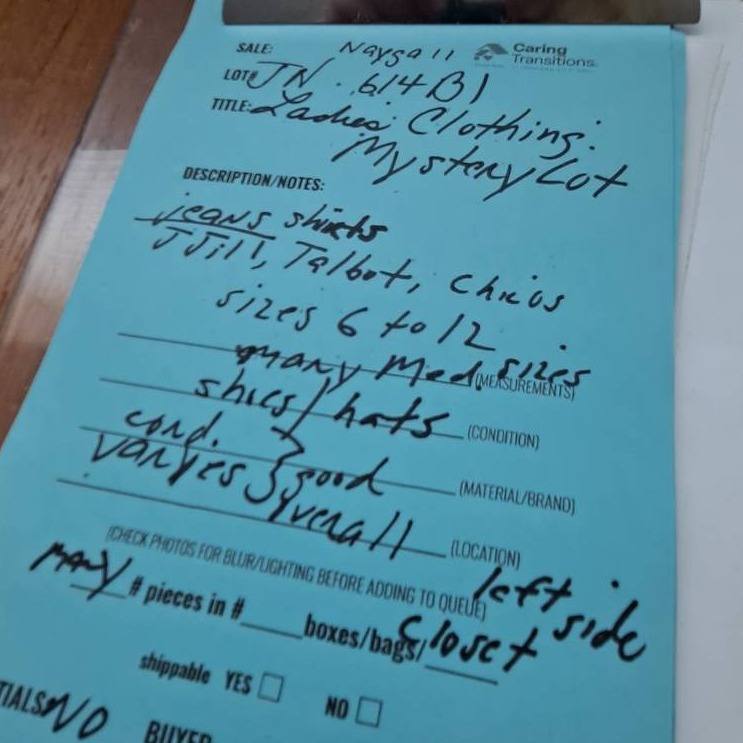 SALE: Naygall Caring Transitions
LOT# JN 614B1
TITLE: Ladies Clothing.
Mystery Lot
DESCRIPTION/NOTES:
jeans shirts
JJill, Talbot, Chicos
sizes 6 to 12
many Med. sizes (MEASUREMENTS)
shies/hats (CONDITION)
cond. } good (MATERIAL/BRAND)
varyes } overall (LOCATION)
(CHECK PHOTOS FOR BLUR/LIGHTING BEFORE ADDING TO QUEUE) left side
MANY # pieces in # ____ boxes/bags/ closet
shippable YES ☐ NO ☐
TIALS NO BUYER